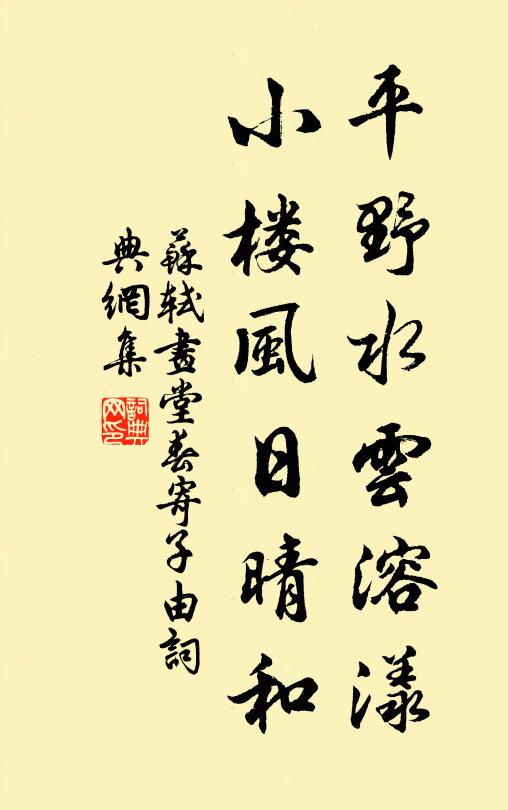 平野水雲溶漾
小楼風日晴和
蘇軾畫堂春寄子由詞
典網集
詞典网印